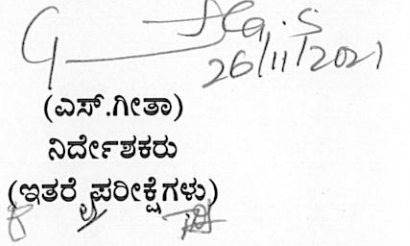 26/11/2021
(ಎಸ್.ಗೀತಾ)
ನಿರ್ದೇಶಕರು
(ಇತರೆ ಪರೀಕ್ಷೆಗಳು)